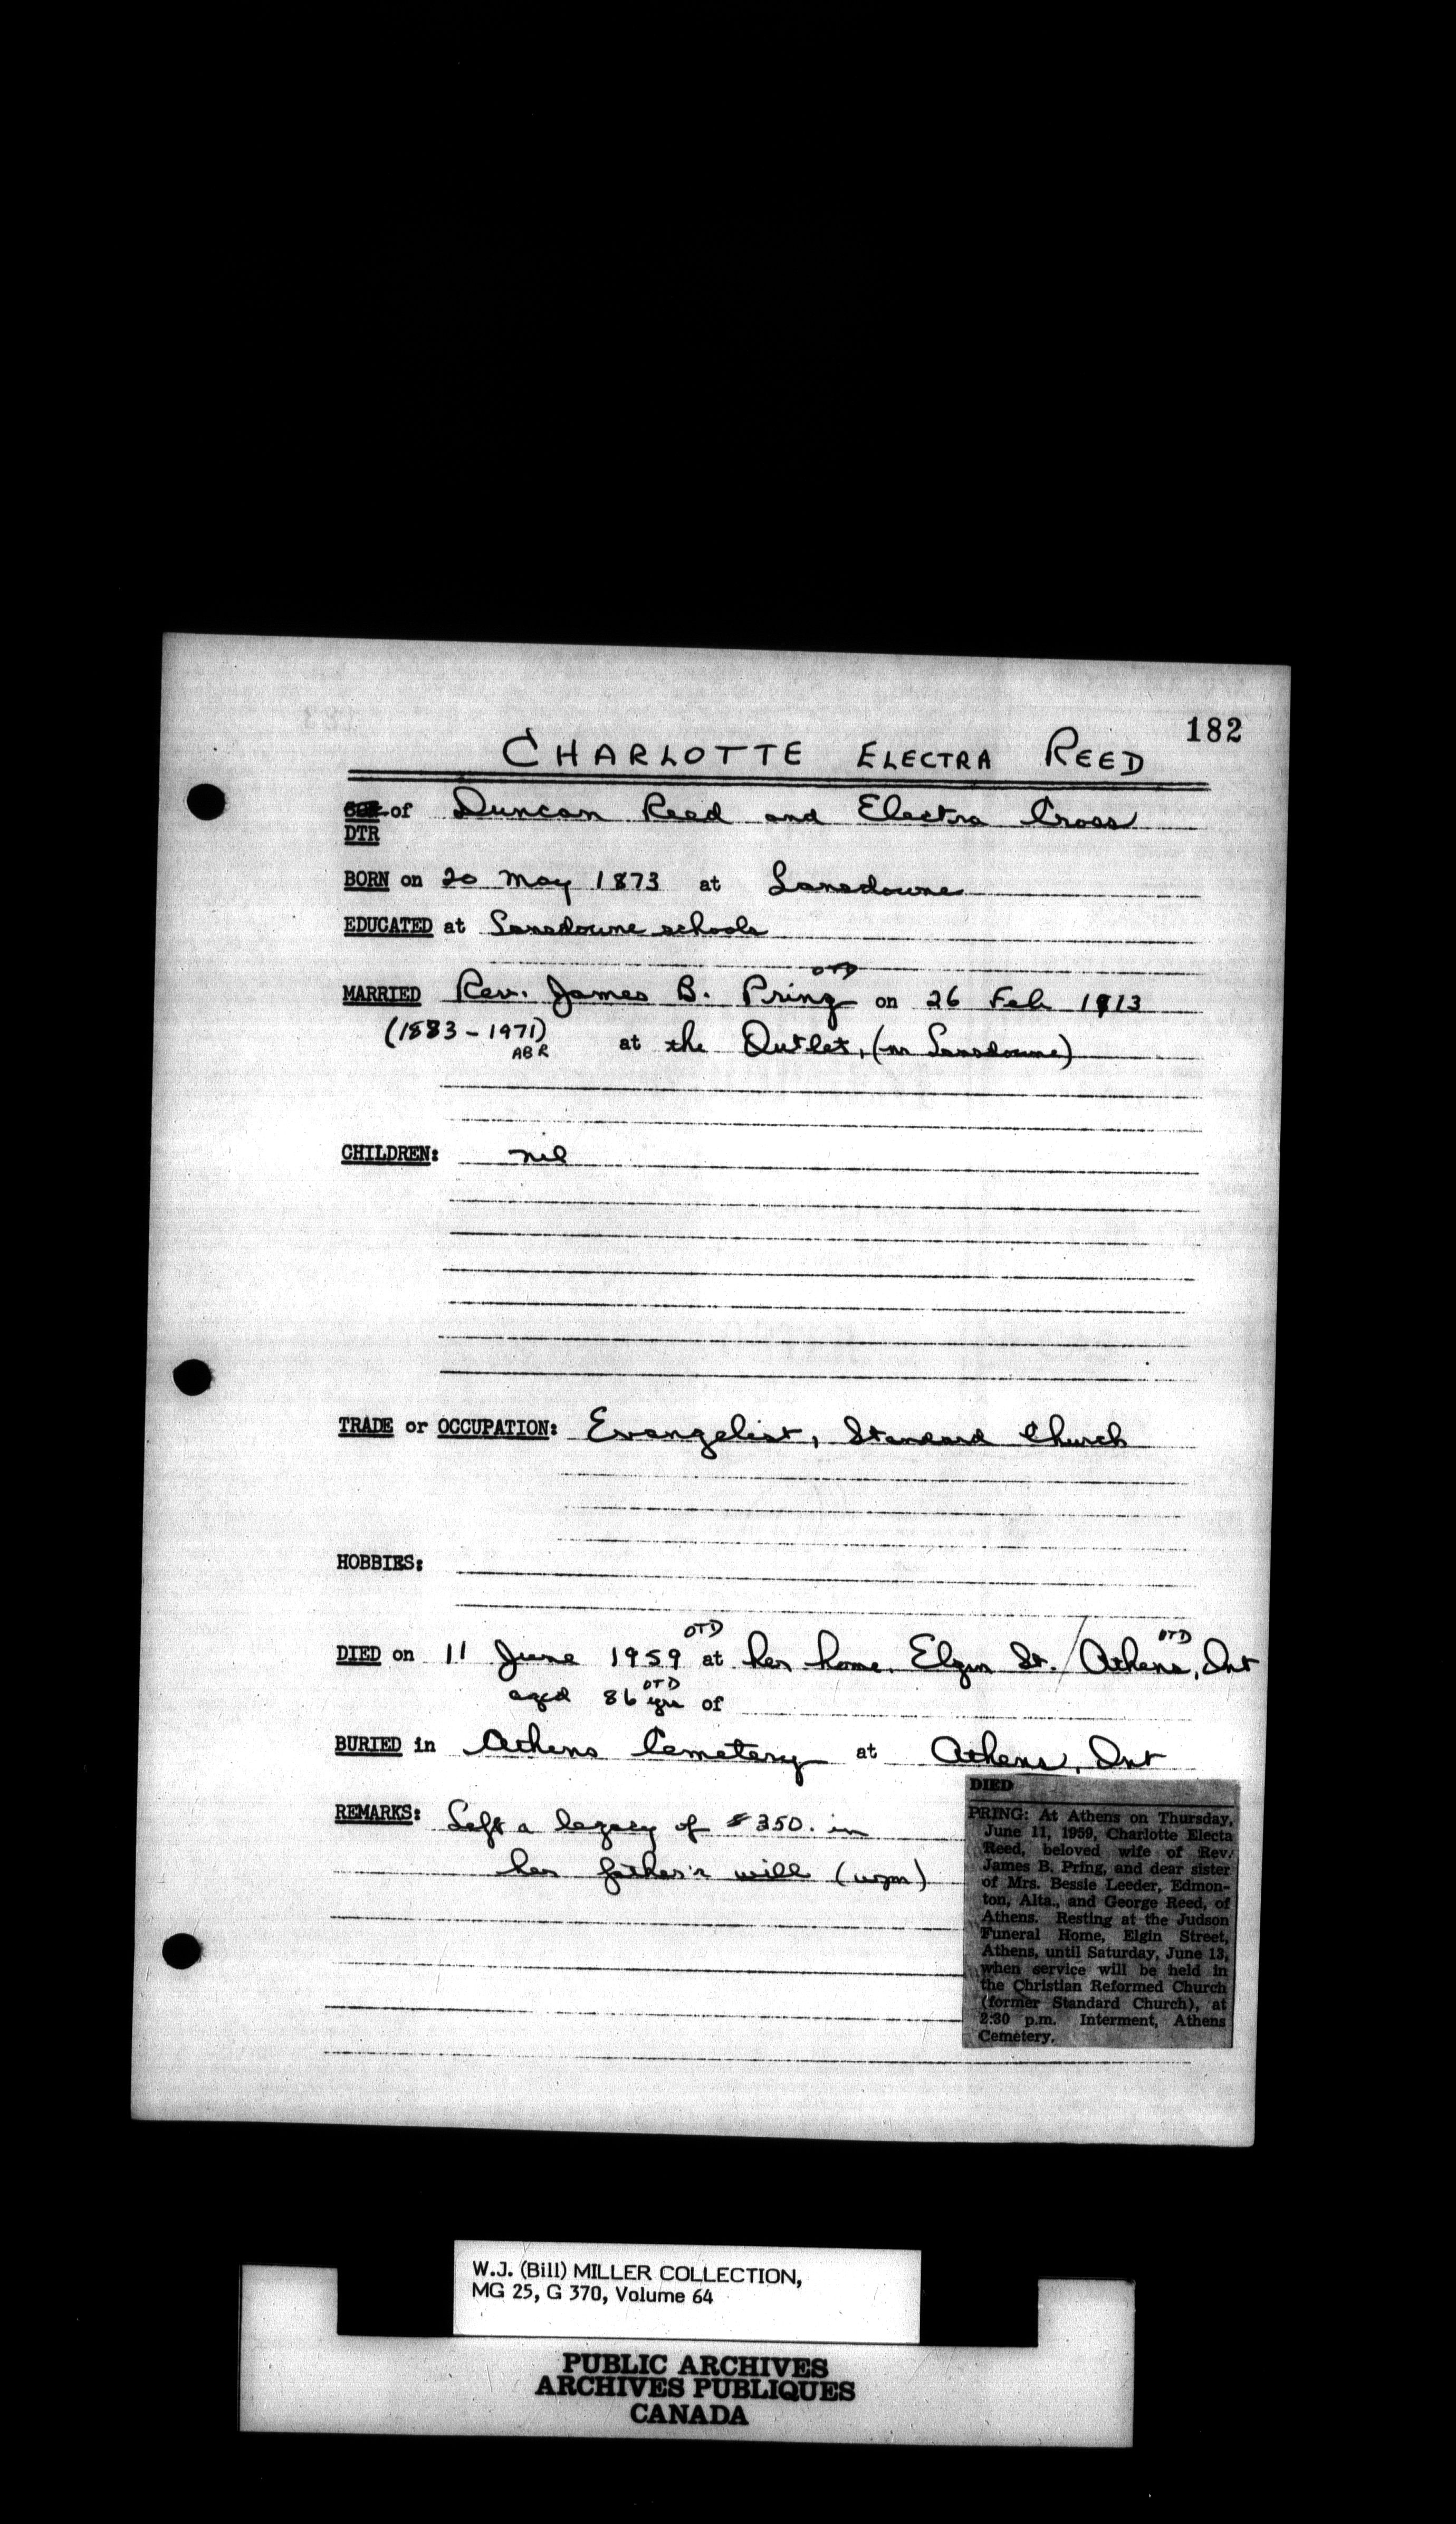 182
CHARLOTTE ELECTRA REED
of Duncan Reed and Electra Cross
DTR
BORN on 20 May 1873 at Lansdowne
EDUCATED at Lansdowne schools
OTD
MARRIED Rev. James B. Pring on 26 Feb 1913
(1883-1971) at the Outlet, (nr Lansdowne)
ABR
CHILDREN: nil
TRADE or OCCUPATION: Evangelist, Standard Church
HOBBIES:
OTD OTD
DIED on 11 June 1959 at her home, Elgin St. / Athens, Ont
OTD
aged 86 yrs of
BURIED in Athens Cemetery at Athens, Ont
REMARKS: Left a legacy of $350. in
her father's will (wjm)
DIED
PRING: At Athens on Thursday,
June 11, 1959, Charlotte Electa
Reed, beloved wife of Rev.
James B. Pring, and dear sister
of Mrs. Bessie Leeder, Edmon-
ton, Alta., and George Reed, of
Athens. Resting at the Judson
Funeral Home, Elgin Street,
Athens, until Saturday, June 13,
when service will be held in
the Christian Reformed Church
(former Standard Church), at
2:30 p.m. Interment, Athens
Cemetery.
W.J. (Bill) MILLER COLLECTION,
MG 25, G 370, Volume 64
PUBLIC ARCHIVES
ARCHIVES PUBLIQUES
CANADA